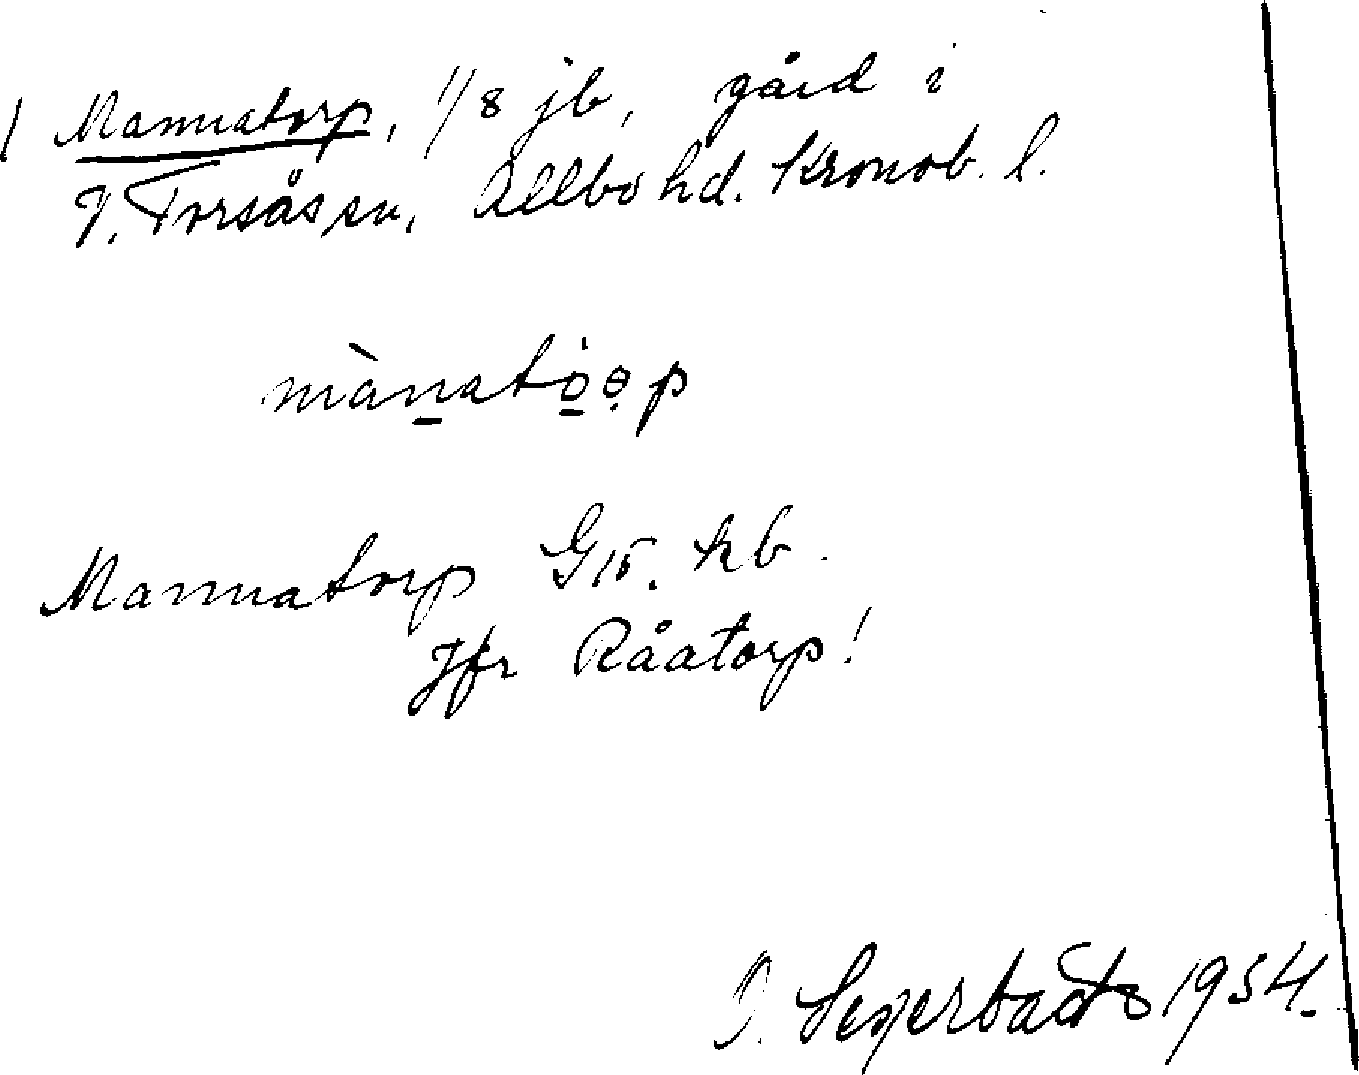 Mannatorp, 1/8 jb, gård i
V. Torsås sn, Allbo hd. Kronob. l.
mànatòɵp
Mannatorp G15. kb.
Jfr Råatorp!
1954.